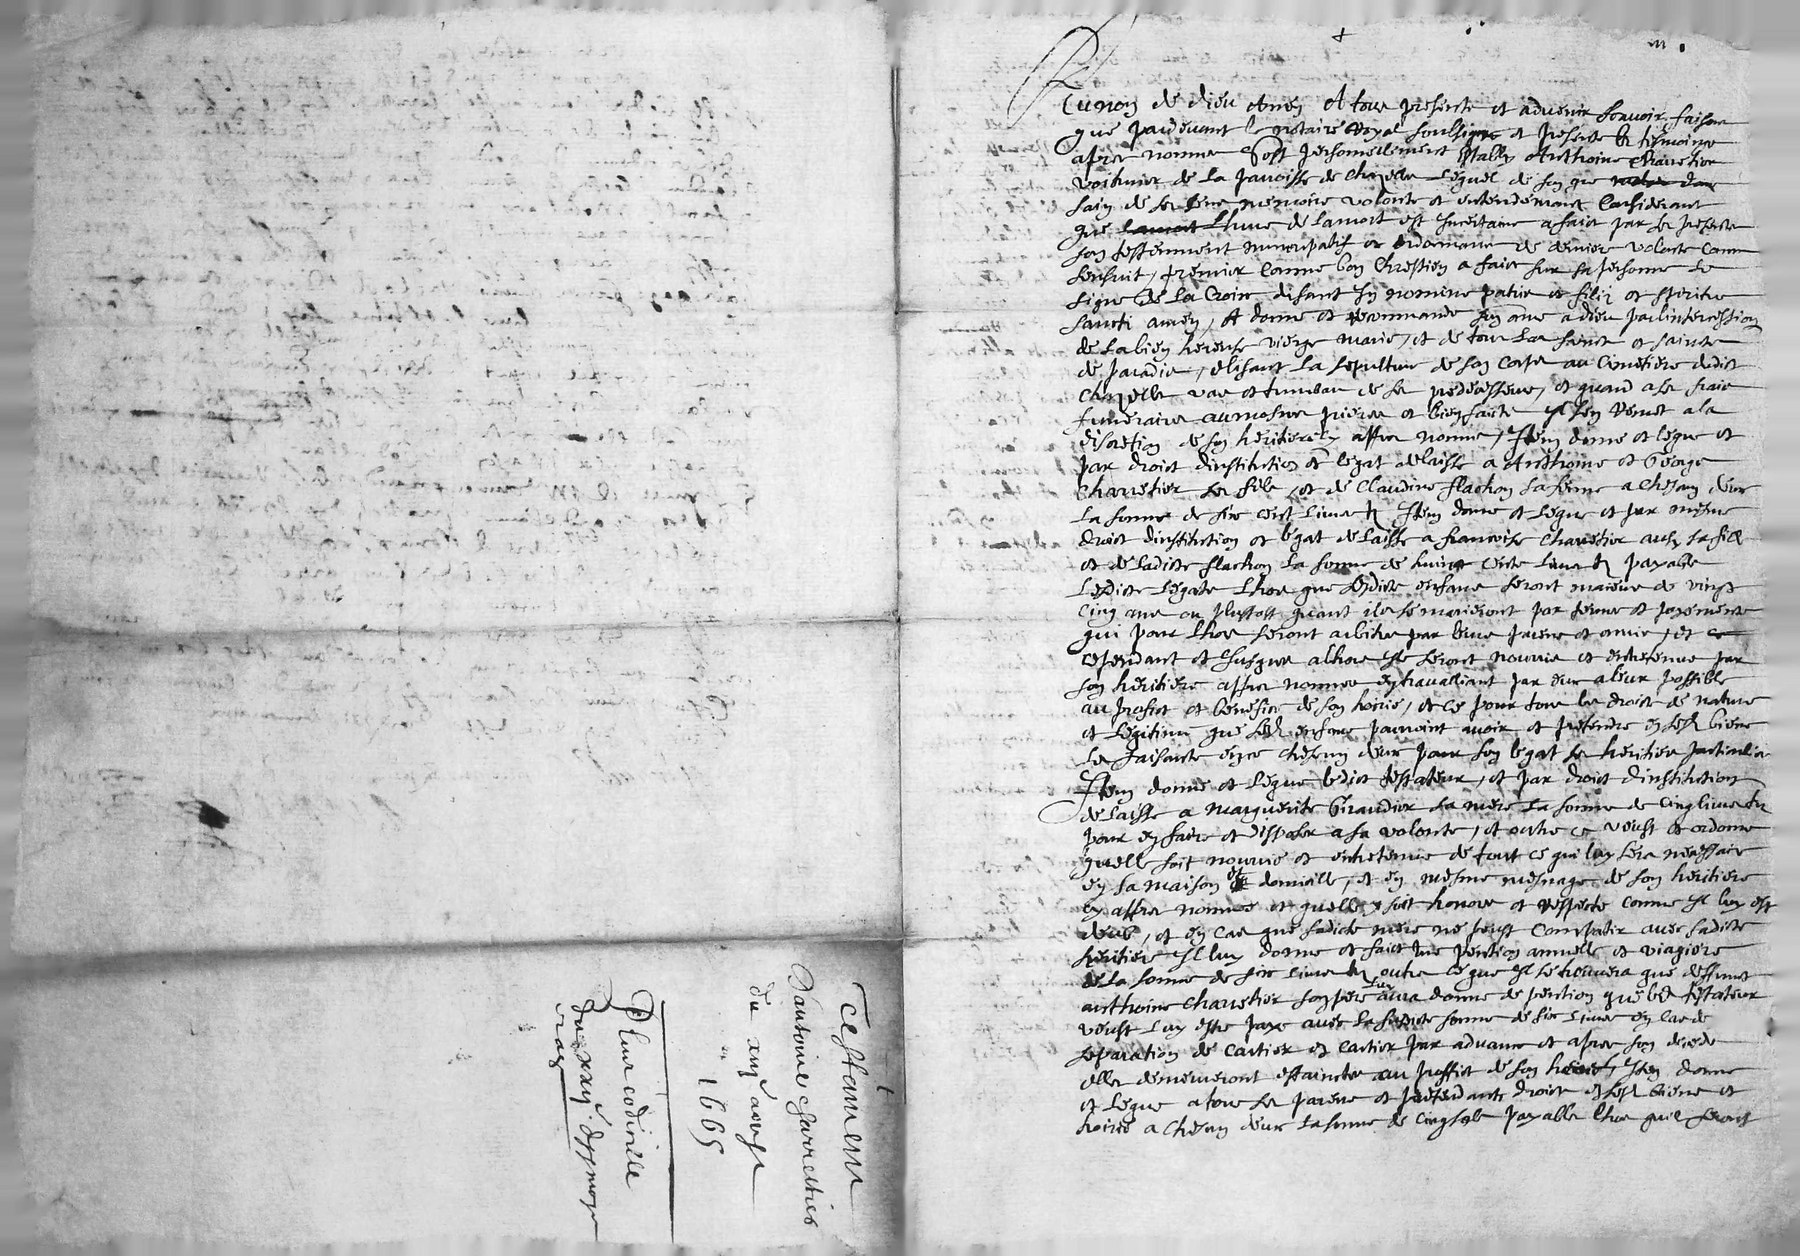 Testament
Dantoine Charretier
du xiiij aoust
1665
Plus codicille
du xxvij
Au nom de dieu Amen A tous presents et advenir scavoir faisons
que pardevant le notaire Royal soubsigne et presents les tesmoings
apres nommes sest personnellement estably Anthoine Charretier
voiturier de la parroisse de Chazelles lequel de son gre
sain de ses sens memoire volonte et entendement Considerant
que Lheure de la mort est Incertaine a faict par ces presentes
son testemment nuncupatif et ordonnance de derniere volonte comme
sensuit, premier comme bon Chrestien a faict sur sa personne le
signe de La Croix disant In nomine patris et filij et spiritus
sancti amen, A donne et recommande son ame a dieu par lintercession
de la bien heureuse vierge marie, et de tous Les saincts et saintes
de paradis, elisant La sepulture de son corps au Cimetiere dudict
Chazelles vas et tumbeau de ses predecesseurs, et quand a ses frais
funeraires aumosnes prieres et bienfaicts Il sen remet a la
discretion de son heritiere cy apres nommee, Item donne et legue et
par droict dinstitution et legat delaisse a Anthoine et George
Charretier ses fils, et de Claudine flachon sa femme a chescung deux
La somme de six cent Livres tz Item donne et legue et par mesme
droict dinstitution et legat delaisse a francoise Charretier aussy sa fille
et de ladicte flachon La somme de huict cents Livres tz payables
Lesdicts Legats Lhors que Lesdicts enfans seront maieurs de vingt
cinq ans ou plustost quand ils se marieront par termes et payements
qui pour Lhors seront arbitres par leurs parens et amis, et ce
cependant et Jusques alhors Ils seront nourris et entretenus par
son heritiere apres nommee en travaillant par eux a leur possible
au proffict et benefice de son hoirie, et ce pour tous les droicts de nature
et Legitime que sesd enfans pourroient avoir et pretendre en sesd biens
Les faisants en ce chescung deux pour son legat ses heritiers particuliers
Item donne et Legue ledict testateur, et par droict dinstitution
delaisse a Marguerite Giraudier sa mere La somme de Cinq livres tz
pour en faire et disposer a sa volonte, et outre ce veult et ordonne
quelle soit nourrie et entretenue de tout ce qui luy sera necessaire
en sa maison et domicille, et en mesme mesnage de son heritiere
cy apres nommee et quelle y soit honoree et respectee comme Il luy est
deub, et en cas que sadicte mere ne peust Compatir avec sadicte
heritiere Il luy donne et faict une pention annuelle et viagiere
de La somme de six Livres tz outre ce que Il se trouvera que deffunct
anthoine Charretier son pere luy aura donne de pention que led testateur
veult Luy estre paye avec La susdicte somme de six Livres en cas de
separation de Cartier en Cartier par advance et apres son decede
elles demeureront estainctes au proffict de son hoirie, Item donne
et Legue a tous ses parens et pretendants droict en sesd biens et
hoirie a chescung deux La somme de Cinq sols payable Lhors quil seront